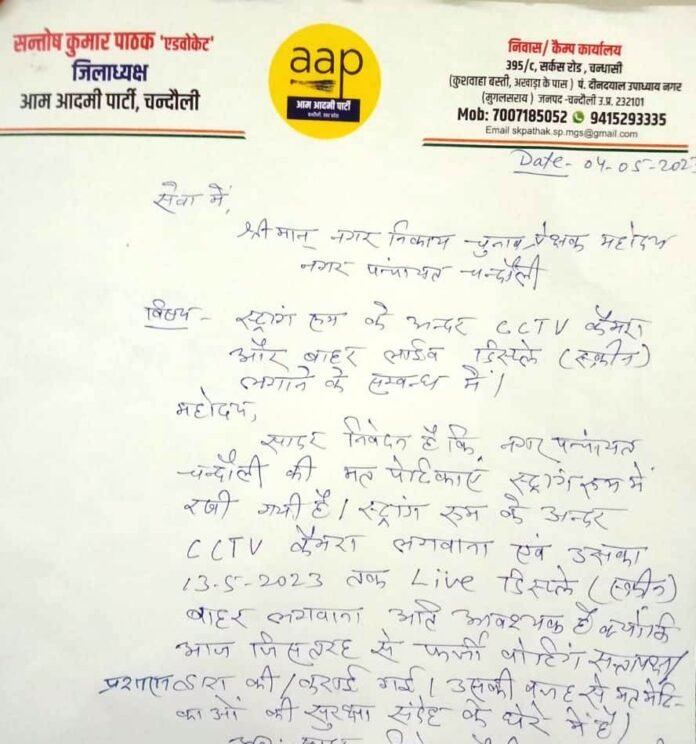 सन्तोष कुमार पाठक 'एडवोकेट'
जिलाध्यक्ष
आम आदमी पार्टी, चन्दौली
aap
आम आदमी पार्टी
चन्दौली, उत्तर प्रदेश
निवास/ कैम्प कार्यालय
395/c, सर्कस रोड, चन्धासी
(कुशवाहा बस्ती, अखाड़ा के पास) पं. दीनदयाल उपाध्याय नगर
(मुगलसराय) जनपद-चन्दौली उ.प्र. 232101
Mob: 7007185052 9415293335
Email skpathak.sp.mgs@gmail.com
Date- 04-05-2023
सेवा में,
श्रीमान् नगर निकाय चुनाव प्रेक्षक महोदय
नगर पंचायत चन्दौली
विषय- स्ट्रांग रूम के अन्दर CCTV कैमरा
और बाहर लाईव डिस्प्ले (स्क्रीन)
लगाने के सम्बन्ध में।
महोदय,
सादर निवेदन है कि नगर पन्चायत
चन्दौली की मत पेटिकाएं स्ट्रांग रूम में
रखी गयी है। स्ट्रांग रूम के अन्दर
CCTV कैमरा लगवाना एवं उसका
13-5-2023 तक Live डिस्प्ले (स्क्रीन)
बाहर लगवाना अति आवश्यक है क्योंकि
आज जिस तरह से फर्जी वोटिंग सत्तापक्ष/
प्रशासन द्वारा की/कराई गई। उसकी वजह से मतपेटि-
काओं की सुरक्षा संदेह के घेरे में है।